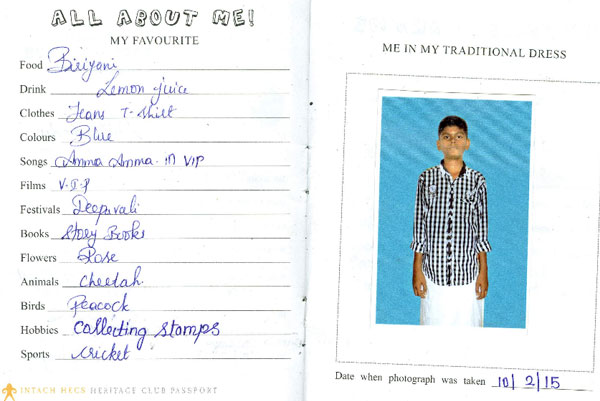 ALL ABOUT ME!
MY FAVOURITE
Food Biriyani
Drink Lemon juice
Clothes Jeans T-shirt
Colours Blue
Songs Amma Amma in VIP
Films V.I.P
Festivals Deepavali
Books Story Books
Flowers Rose
Animals Cheetah
Birds Peacock
Hobbies Collecting stamps
Sports cricket
INTACH HECS HERITAGE CLUB PASSPORT
ME IN MY TRADITIONAL DRESS
Date when photograph was taken 10/2/15